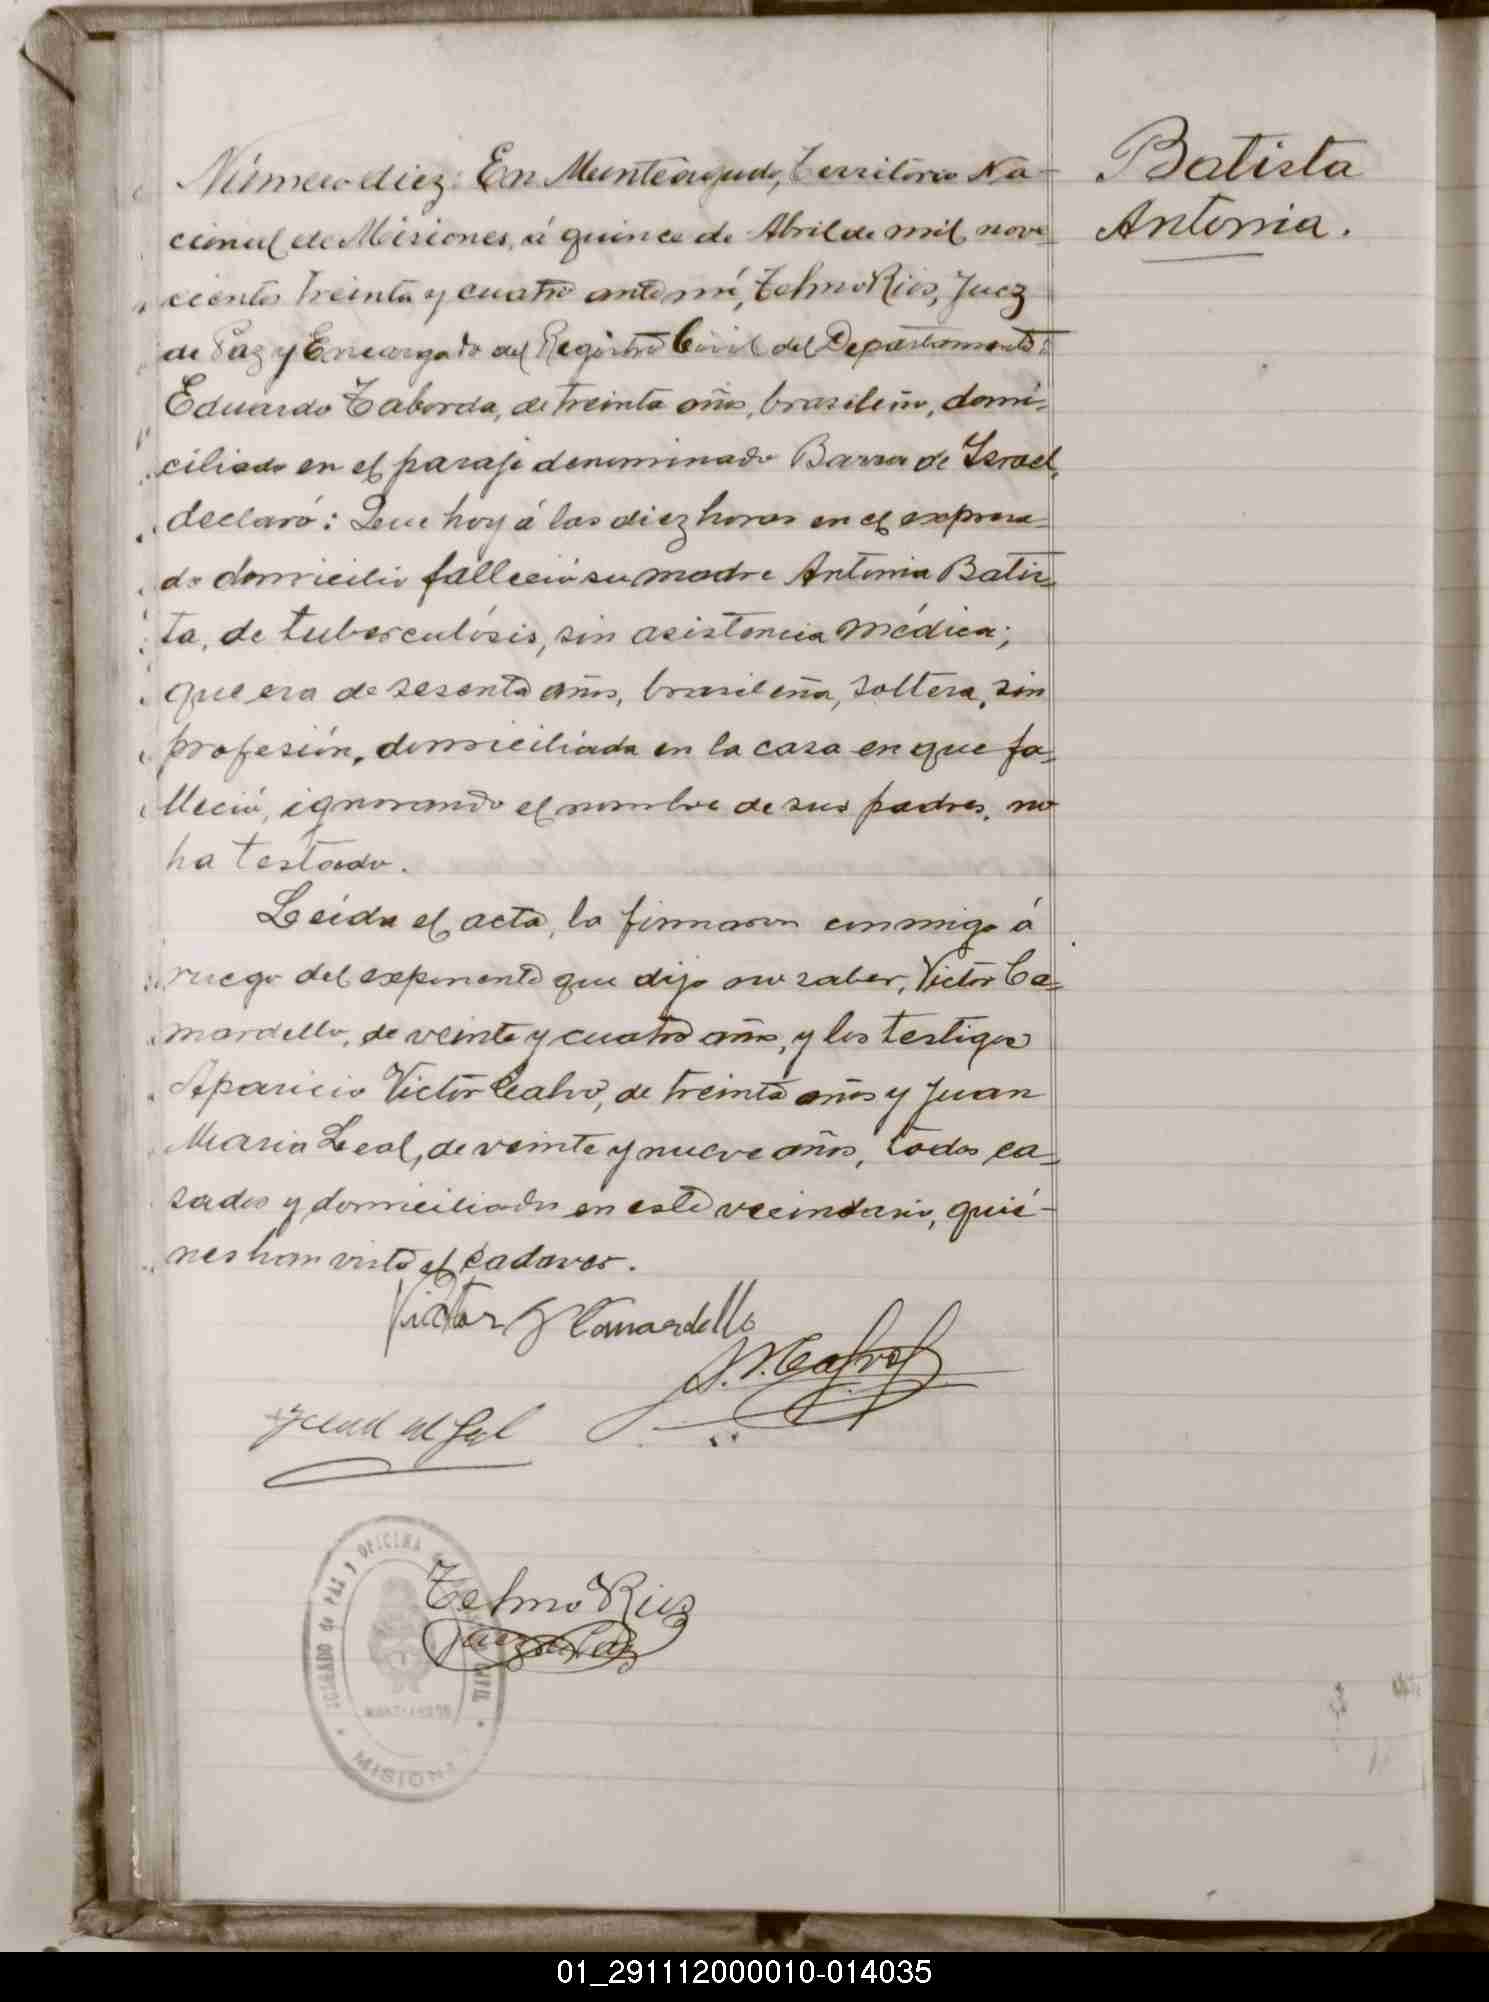 Batista
Antonia.
Número diez: En Monteagudo, Territorio Na-
cional de Misiones, á quince de Abril de mil nove-
cientos treinta y cuatro ante mí, Telmo Rios, Juez
de Paz y Encargado del Registro Civil del Departamento:
Eduardo Taborda, de treinta años, brasileño, domi-
ciliado en el paraje denominado Barra de Israel,
declaró: Que hoy á las diez horas en el expresa-
do domicilio falleció su madre Antonia Batis-
ta, de tuberculósis, sin asistencia médica;
que era de sesenta años, brasileña, soltera, sin
profesión, domiciliada en la casa en que fa-
lleció, ignorando el nombre de sus padres, no
ha testado.
Leída el acta, la firmaron conmigo á
ruego del exponente que dijo no saber, Victor Ca-
mardello, de veinte y cuatro años, y los testigos
Aparicio Victor Calvo, de treinta años y Juan
Maria Leal, de veinte y nueve años, todos ca-
sados y domiciliados en este vecindario, quié-
nes han visto el cadaver.
Victor Camardello
Calvo
Telmo Rios
Juez de Paz
JUZGADO de PAZ y OFICINA
MISIONES
01_291112000010-014035